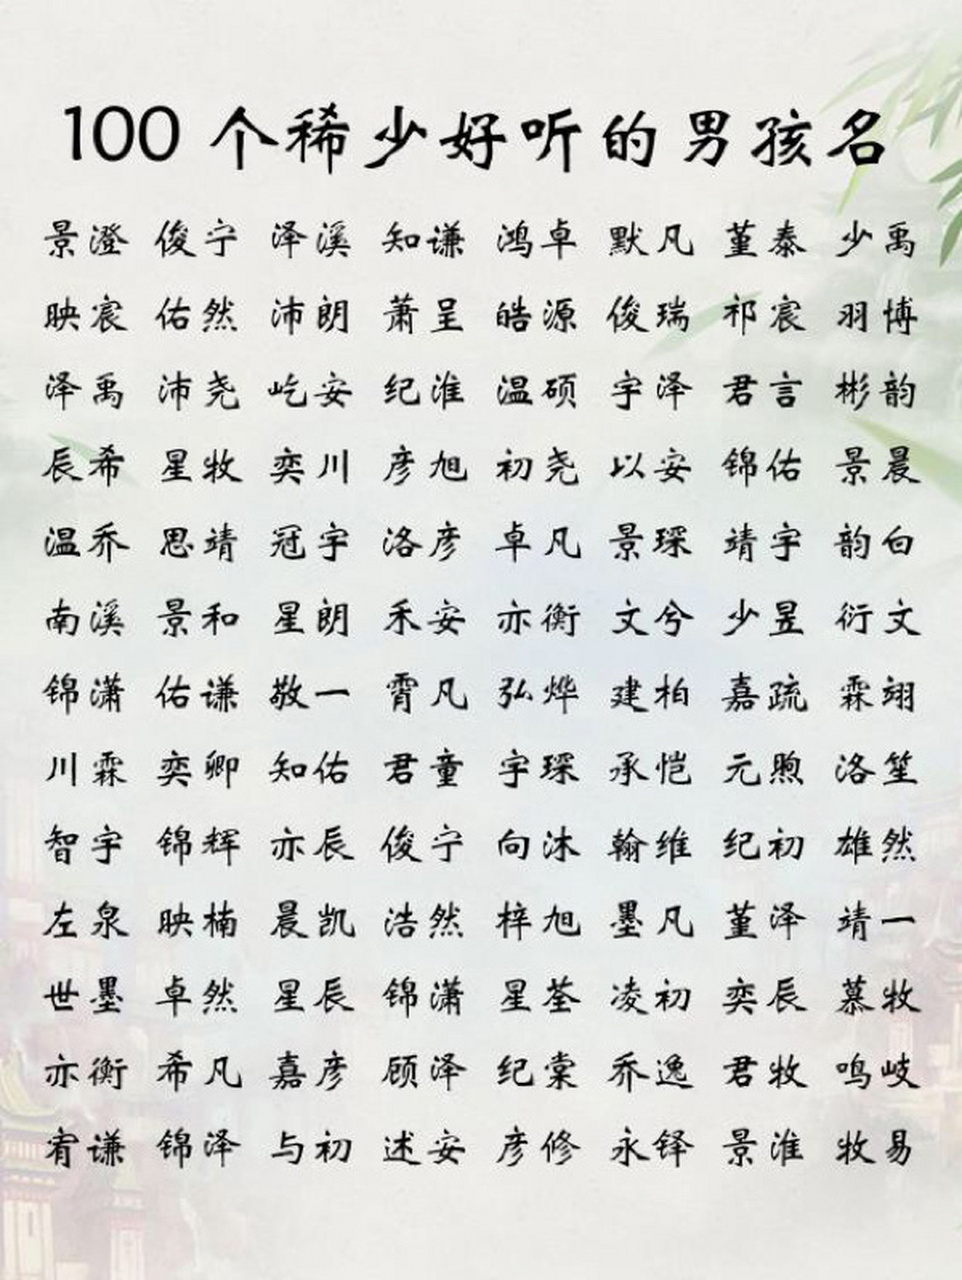 100 个稀少好听的男孩名
景澄 俊宁 泽溪 知谦 鸿卓 默凡 堇泰 少禹
映宸 佑然 沛朗 萧呈 皓源 俊瑞 祁宸 羽博
泽禹 沛尧 屹安 纪淮 温硕 宇泽 君言 彬韵
辰希 星牧 奕川 彦旭 初尧 以安 锦佑 景晨
温乔 思靖 冠宇 洛彦 卓凡 景琛 靖宇 韵白
南溪 景和 星朗 禾安 亦衡 文兮 少昱 衍文
锦潇 佑谦 敬一 霄凡 弘烨 建柏 嘉疏 霖翊
川霖 奕卿 知佑 君童 宇琛 承恺 元煦 洛笙
智宇 锦辉 亦辰 俊宁 向沐 翰维 纪初 雄然
左泉 映楠 晨凯 浩然 梓旭 墨凡 堇泽 靖一
世墨 卓然 星辰 锦潇 星荃 凌初 奕辰 慕牧
亦衡 希凡 嘉彦 顾泽 纪棠 乔逸 君牧 鸣岐
宥谦 锦泽 与初 述安 彦修 永铎 景淮 牧易